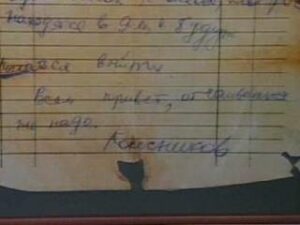 в 9-м. и будут
выйти.
Всем привет, отчаиваться
не надо.
Колесников